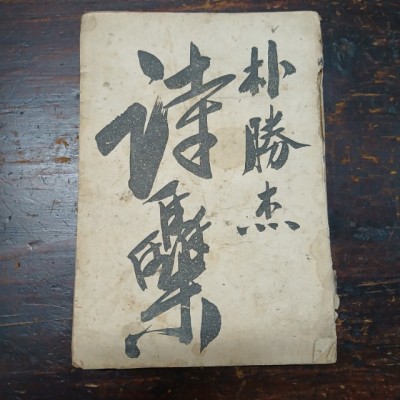 朴勝杰
诗集